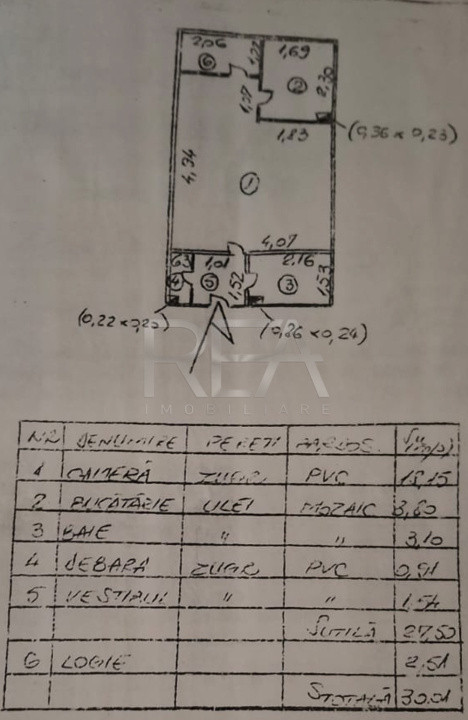 2,06
1,22
1,69
6
2
2,30
1,07
1,83
(0,36 x 0,23)
4,74
1
4,07
63
1,01
2,16
4
5
1,52
3
1,53
(0,22 x 0,20)
(0,86 x 0,24)
REA
IMOBILIARE
NR DENUMIRE PERETI PARDOS. Su (mp)
1 CAMERĂ ZUGR PVC 18,15
2 BUCĂTĂRIE ULEI MOZAIC 3,80
3 BAIE " " 3,10
4 DEBARA ZUGR PVC 0,91
5 VESTIBUL " " 1,54
SUTILĂ 27,50
6 LOGIE 2,51
STOTALĂ 30.01